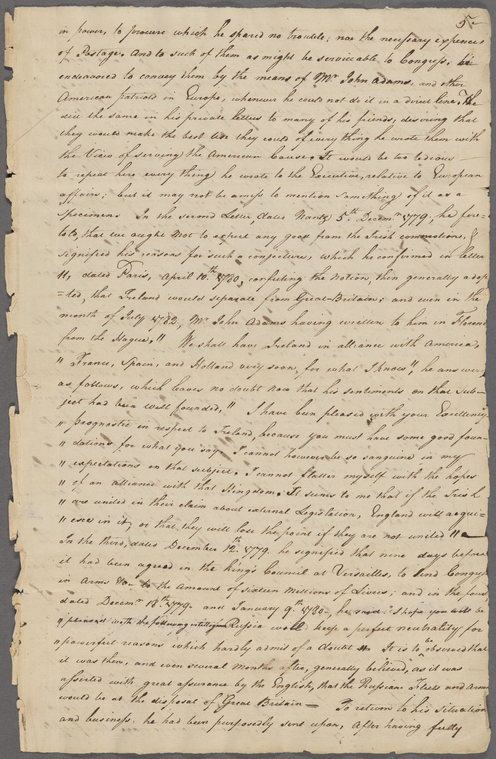 5.
in power, to procure which he spared no trouble; nor the necessary expences
of Postage. And to such of them as might be serviceable to Congress, he
endeavored to convey them by the means of Mr. John Adams and other
American patriots in Europe, whenever he could not do it in a direct line. He
did the same in his private letters to many of his friends, desiring that
they would make the best use they could of every thing he wrote them with
the View of serving the American Cause. It would be too tedious
to repeat here every thing he wrote to the Executive, relative to European
affairs; but it may not be amiss to mention something of it as a
Specimen. In the second Letter dated Nantz 5th. Decemr. 1779, he fore-
told, that we ought not to expect any good from the Irish commotions, &
signified his reasons for such a conjecture, which he confirmed in letter
11, dated Paris, April 10th. 1780, confuting the notion, then generally adop
=ted, that Ireland would separate from Great-Britain; and even in the
month of July 1782, Mr. John Adams having written to him in Florence
from the Hague, "We shall have Ireland in alliance with America,
" France, Spain, and Holland very soon, for what I know", he answered
as follows, which leaves no doubt now that his sentiments on that Sub-
ject had been well founded, " I have been pleased with your Excellency's
" prognostic in respect to Ireland, because you must have some good foun-
" dations for what you say. I cannot however be so sanguine in my
" expectations on that subject. I cannot flatter myself with the hopes
" of an alliance with that Kingdom. It seems to me that if the Irish
" are united in their claim about external Legislation, England will acqui-
" esce in it, or that they will lose the point if they are not united "
In the third, dated December 12th. 1779. he signified that nine days before
it had been agreed in the King's Council at Versailles, to send Congress
in Arms &c. to the amount of sixteen Millions of Livres; and in the four
dated Decemr. 18th. 1779. and January 9th. 1780, he said: I hope you will be
" pleased with the following intelligence Russia will keep a perfect neutrality for
" powerful reasons which hardly admit of a doubt. It is to be observed that
it was then, and even several Months after, generally believed, as it was
asserted with great assurance by the English, that the Russian Fleets and Armies
would be at the disposal of Great Britain — To return to his situation
and business. he had been purposedly sent upon, After having fully